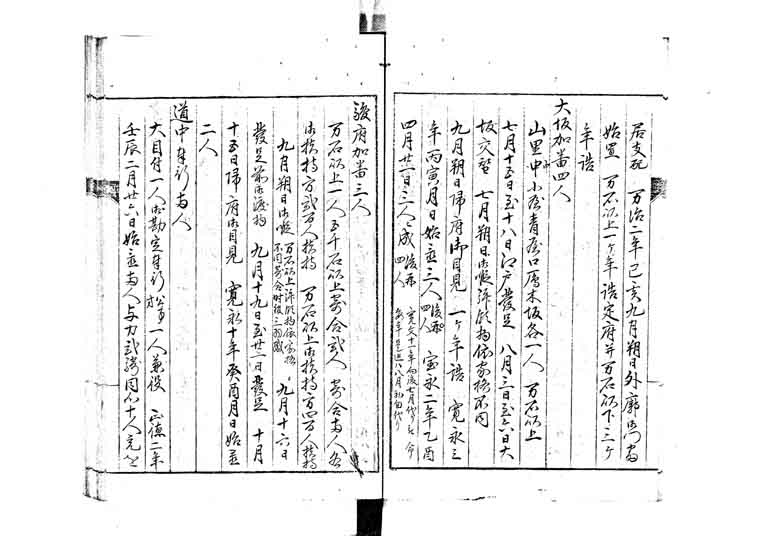 居支配 万治二年己亥九月朔日外廓御門番
始置 万石以上一ヶ年詰定府并万石以下三ヶ
年詰
大坂加番四人
山里中小屋青屋口雁木坂各一人 万石以上
七月十五日至十八日江戸發足 八月三日至六日大
坂交替 七月朔日御暇拝領物依家格不同
九月朔日帰府御目見 一ヶ年詰 寛永三
年丙寅月日始並三人後四人 宝永二年乙酉
四月廿一日三人成後亦四人
駿府加番三人
万石以上一人五千石以上寄合弐人 寄合両人各
御扶持方弐百人扶持 万石以上御扶持方四百人扶持
九月朔日御暇 万石以上拝領物依家格不同寄合時服三羽織 九月十六日
發足前御渡物 九月十九日至廿二日發足 十月
十五日帰府御目見 寛永十年癸酉月日始並
二人
道中奉行両人
大目付一人御勘定奉行 一人兼役 正徳二年
壬辰二月廿六日始並両人与力弐騎同心十人充